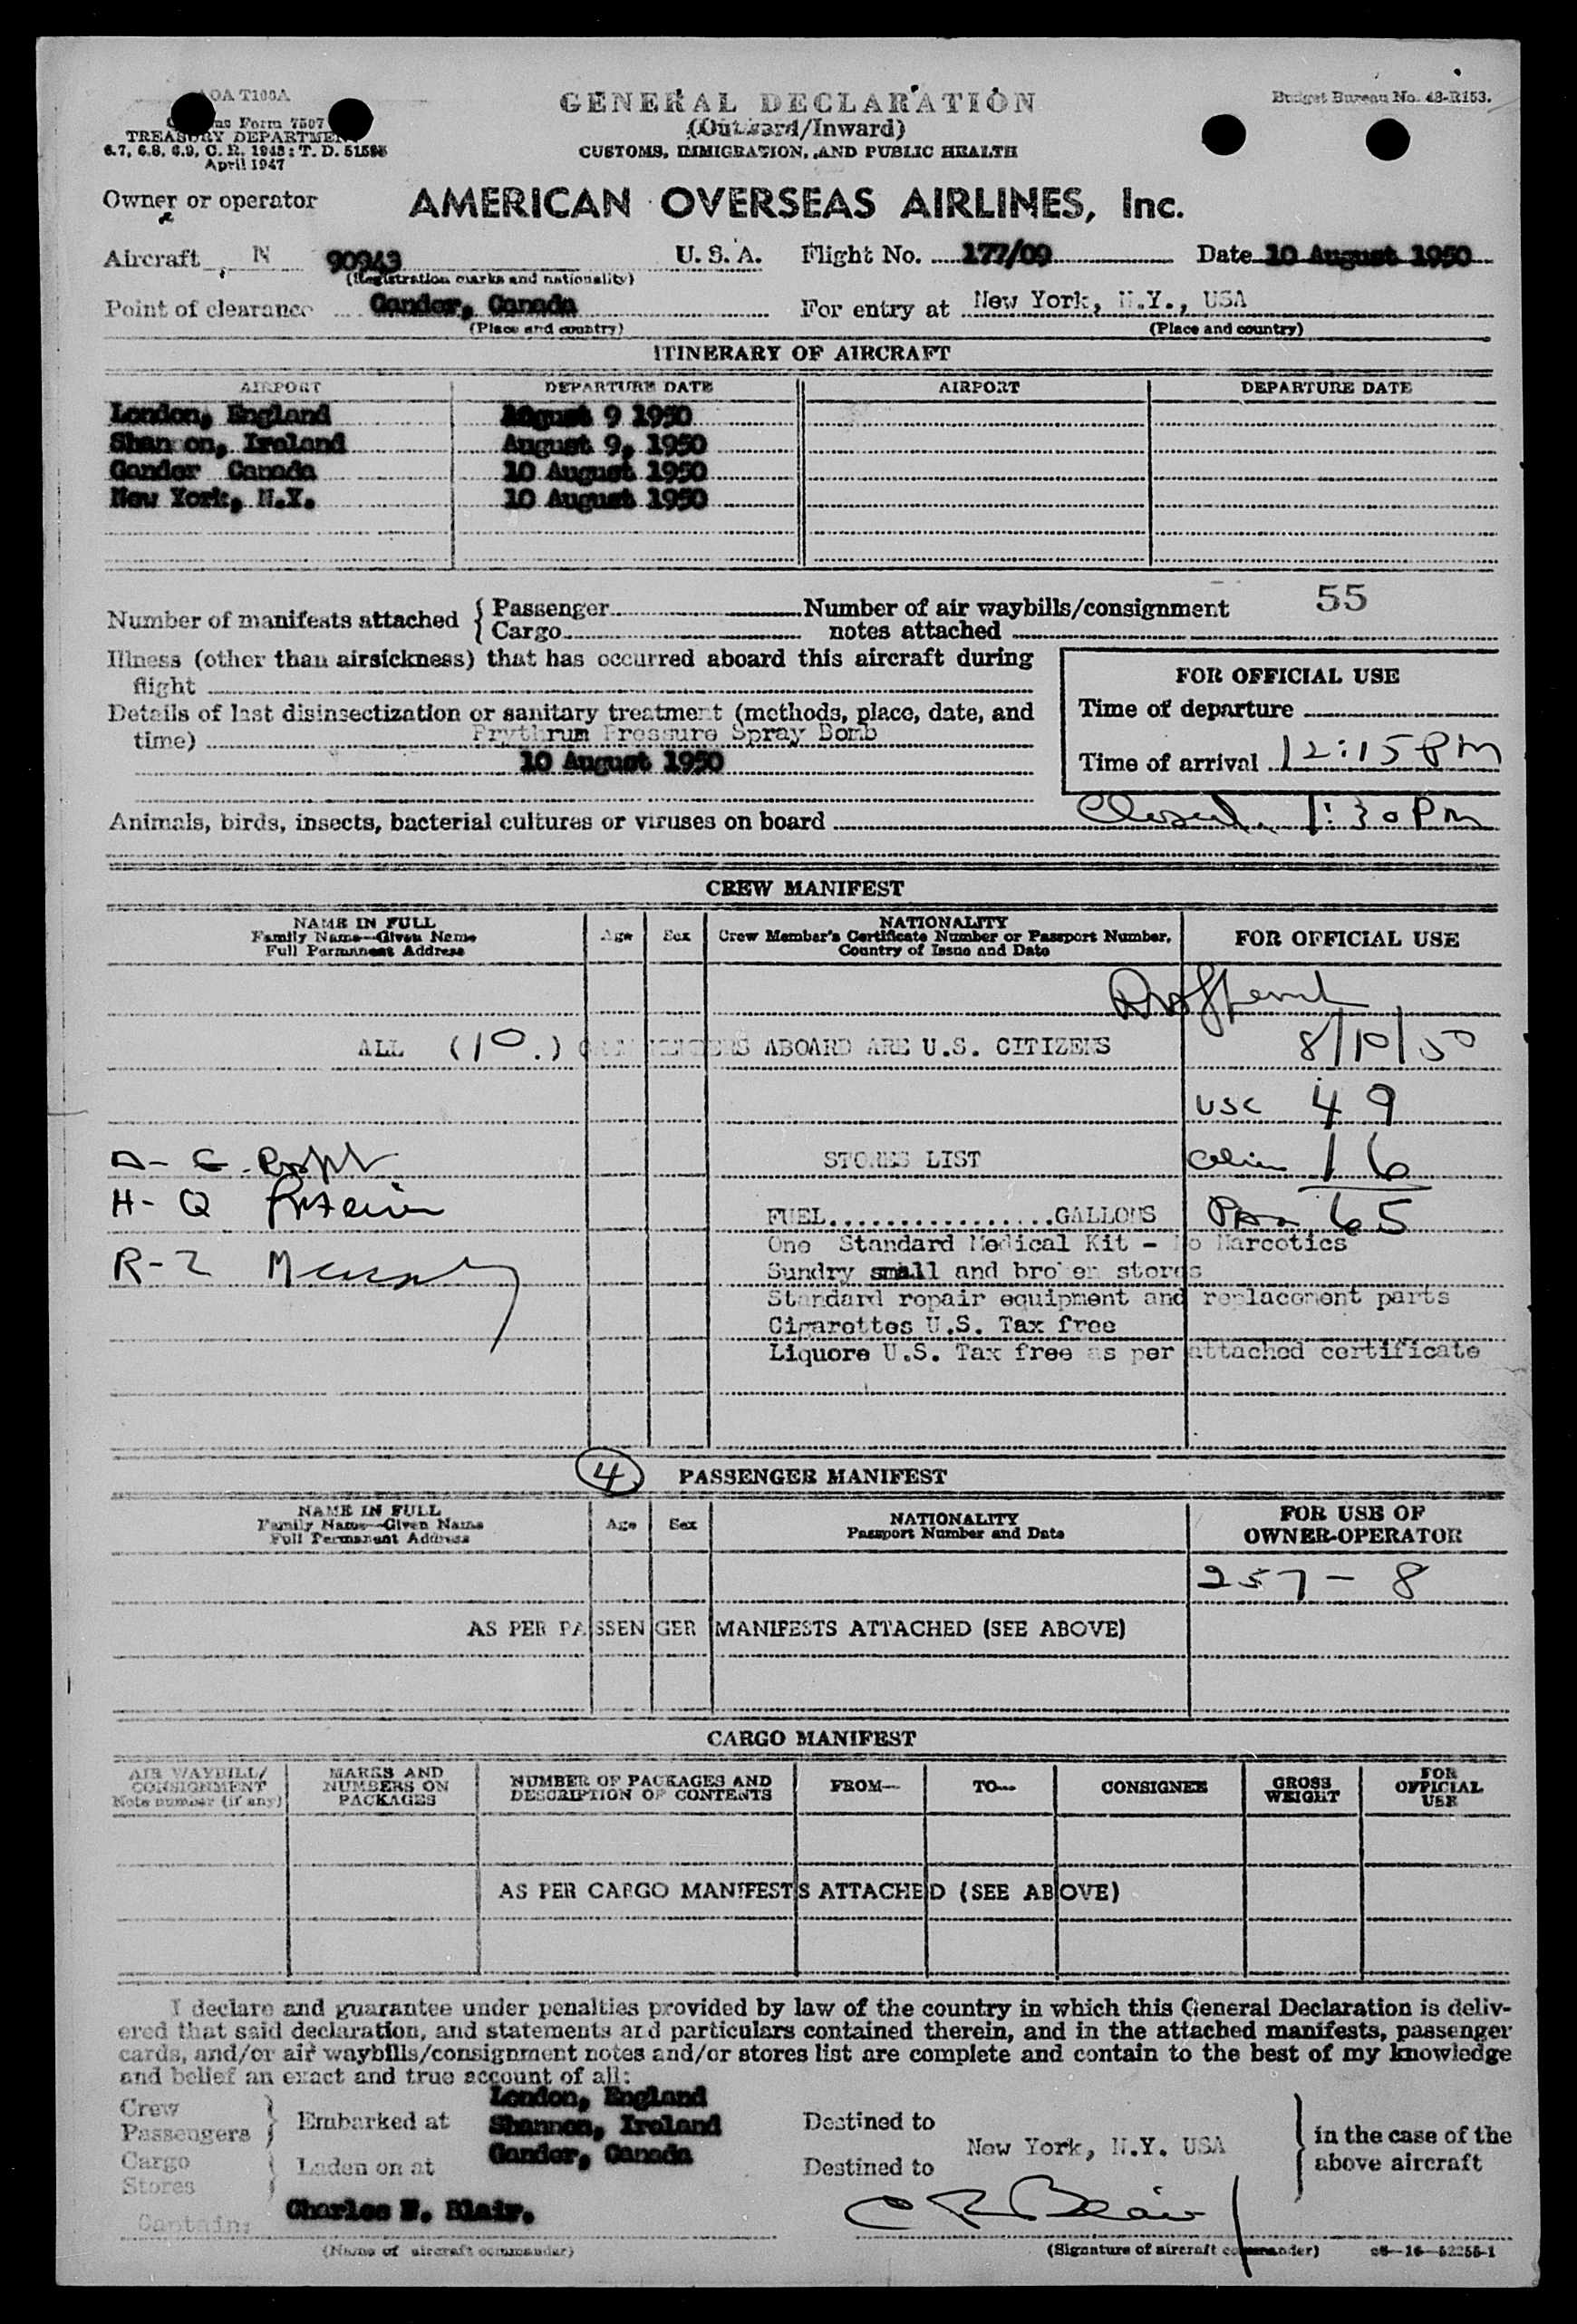 AOA T100A
Form 7507
TREASURY DEPARTMENT
6.7, 6.8, 6.9, C. R. 1943; T. D.
April 1947
GENERAL DECLARATION
(Outward/Inward)
CUSTOMS, IMMIGRATION, AND PUBLIC HEALTH
Budget Bureau No. 48-R153.
Owner or operator AMERICAN OVERSEAS AIRLINES, Inc.
Aircraft N 90943 U. S. A. Flight No. 177/09 Date 10 August 1950
(Registration marks and nationality)
Point of clearance Gander, Canada For entry at New York, N.Y., USA
(Place and country) (Place and country)
ITINERARY OF AIRCRAFT
AIRPORT DEPARTURE DATE AIRPORT DEPARTURE DATE
London, England August 9 1950
Shannon, Ireland August 9, 1950
Gander Canada 10 August 1950
New York, N.Y. 10 August 1950
55
Number of manifests attached { Passenger Number of air waybills/consignment
Cargo notes attached
Illness (other than airsickness) that has occurred aboard this aircraft during
flight
FOR OFFICIAL USE
Time of departure
Time of arrival 12:15 PM
Details of last disinsectization or sanitary treatment (methods, place, date, and
time) Prythrum Pressure Spray Bomb
10 August 1950
Animals, birds, insects, bacterial cultures or viruses on board Closed 1:30 PM
CREW MANIFEST
NAME IN FULL
Family Name—Given Name
Full Permanent Address
Age Sex
NATIONALITY
Crew Member's Certificate Number or Passport Number,
Country of Issue and Date
FOR OFFICIAL USE
ALL (10.) CREW MEMBERS ABOARD ARE U.S. CITIZENS 8/10/50
USC 49
STORES LIST alien 16
A- C-
H- Q
FUEL................GALLONS Pax 65
One Standard Medical Kit - No Narcotics
R-2 Murphy
Sundry small and broken stores
Standard repair equipment and replacement parts
Cigarettes U.S. Tax free
Liquore U.S. Tax free as per attached certificate
4 PASSENGER MANIFEST
NAME IN FULL
Family Name—Given Name
Full Permanent Address
Age Sex
NATIONALITY
Passport Number and Date
FOR USE OF
OWNER-OPERATOR
257 - 8
AS PER PASSENGER MANIFESTS ATTACHED (SEE ABOVE)
CARGO MANIFEST
AIR WAYBILL/
CONSIGNMENT
Note number (if any)
MARKS AND
NUMBERS ON
PACKAGES
NUMBER OF PACKAGES AND
DESCRIPTION OF CONTENTS
FROM— TO— CONSIGNEE
GROSS
WEIGHT
FOR
OFFICIAL
USE
AS PER CARGO MANIFESTS ATTACHED (SEE ABOVE)
I declare and guarantee under penalties provided by law of the country in which this General Declaration is deliv-
ered that said declaration, and statements and particulars contained therein, and in the attached manifests, passenger
cards, and/or air waybills/consignment notes and/or stores list are complete and contain to the best of my knowledge
and belief an exact and true account of all:
London, England
Crew
Passengers } Embarked at Shannon, Ireland Destined to
Gander, Canada New York, N.Y. USA
in the case of the
above aircraft
Cargo
Stores } Laden on at Destined to
Captain: Charles F. Blair. C F Blair
(Name of aircraft commander) (Signature of aircraft commander) 16—52255-1